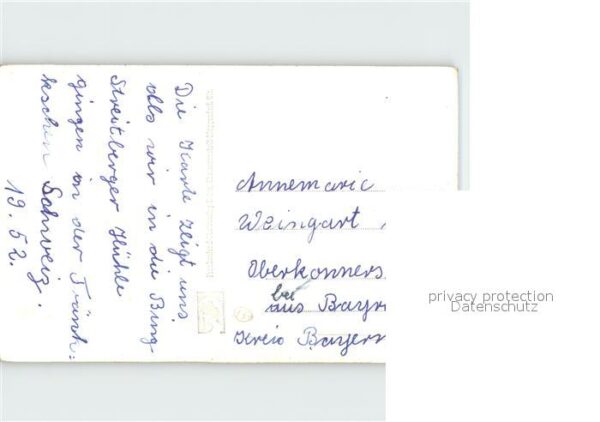 Die Karte zeigt uns
als wir in die Bing-
Streitberger Höhle
gingen in der Fränk=
kschen Schweiz.
19.52.
Annemarie
Weingart,
Oberkonners
bei
aus Bayr
Kreis Bayern
privacy protection
Datenschutz